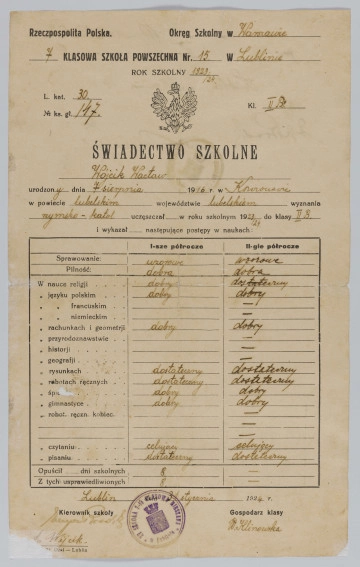 Rzeczpospolita Polska. Okręg Szkolny w Warszawie
7 KLASOWA SZKOŁA POWSZECHNA Nr. 15 w Lublinie
ROK SZKOLNY 1923/24
L. kat. 30
№ ks. gł. 147 Kl. II
ŚWIADECTWO SZKOLNE
Wójcik Wacław
urodzony dnia 7 sierpnia 1916 r. w
w powiecie lubelskim województwie lubelskiem wyznania
rymsko-katol uczęszczał w roku szkolnym 1923/24 do klasy II
i wykazał następujące postępy w naukach:
I-sze półrocze II-gie półrocze
Sprawowanie: wzorowe wzorowe
Pilność: dobra dobra
W nauce religji dobry dostateczny
„ języku polskim dobry dobry
„ francuskim —
„ niemieckim —
„ rachunkach i geometrji dobry dobry
„ przyrodoznawstwie —
„ historji —
„ geografji —
„ rysunkach dostateczny dostateczny
„ robótach ręcznych dostateczny dostateczny
„ dobry dobry
„ gimnastyce dobry dobry
„ robot. ręczn. kobiec. —
—
„ czytaniu celujący celujący
„ pisaniu dostateczny dostateczny
Opuścił dni szkolnych 8 —
Z tych usprawiedliwionych 8 —
Lublin stycznia 1924 r.
Kierownik szkoły Gospodarz klasy
H. Klinowska
Wójcik